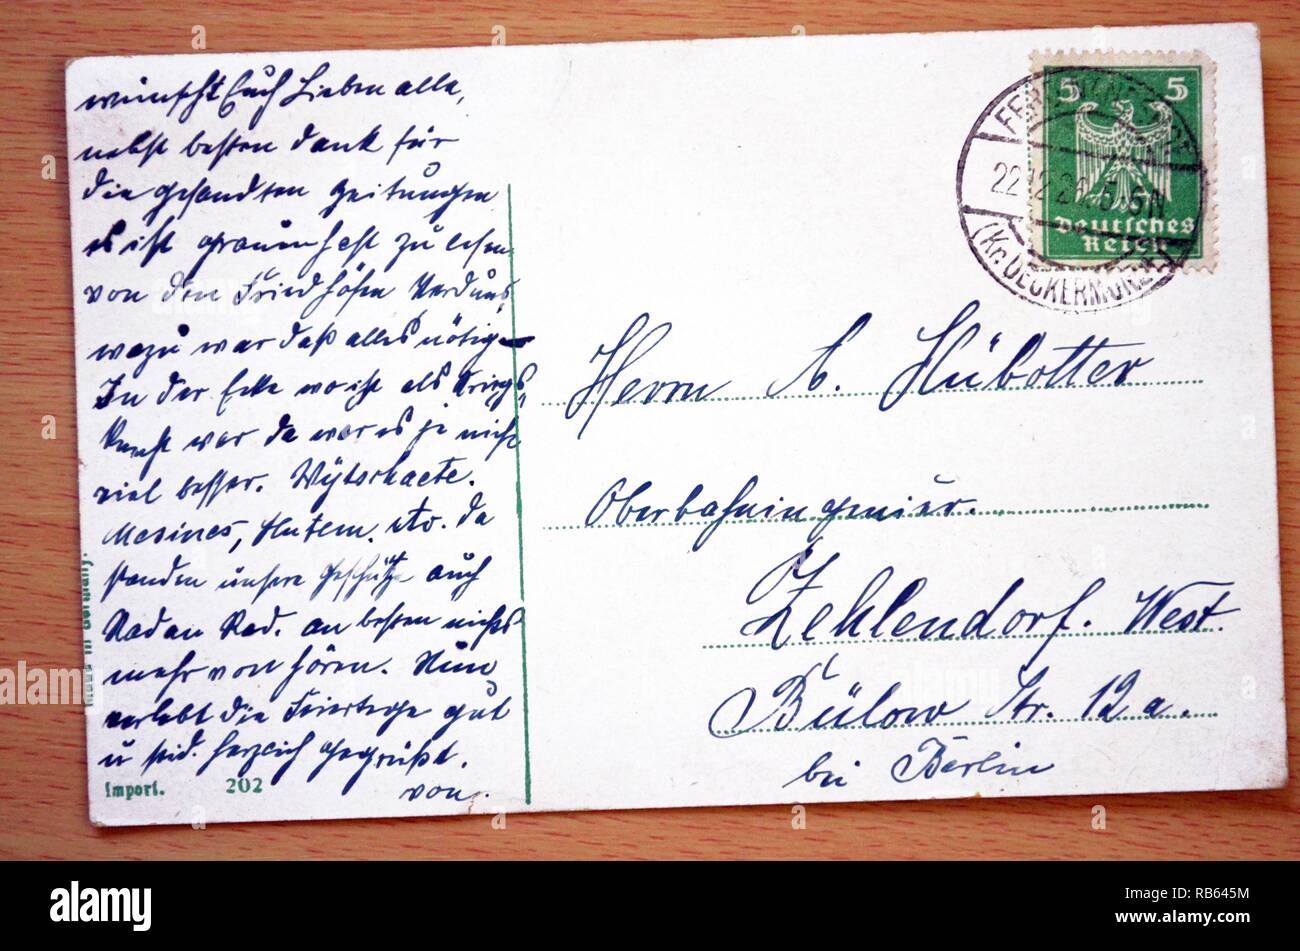 wünscht Euch Lieben alle,
nebst besten Dank für
die gesandten Zeitungen
es ist grauenhaft zu lesen
von den Friedhöfen Verduns,
wozu war das alles nötig
In der Ecke wo ich als Kriegs-
knecht war da war es ja nicht
viel besser. Wÿtschaete.
Mesines, Hutem. etc. da
standen unsere Geschütze auch
Rad an Rad. am besten nichts
mehr von hören. Nun
verlebt die Feiertage gut
u seid. herzlich gegrüßt.
von.
Made in Germany.
Import. 202
5 5
Deutsches
Reich
22.12.26. 5-6N
(Kr. UECKERMÜNDE)
Herrn A. Hübotter
Oberbahningenieur.
Zehlendorf. West.
Bülow Str. 12a.
bei Berlin
alamy
alamy
Image ID: RB645M
www.alamy.com